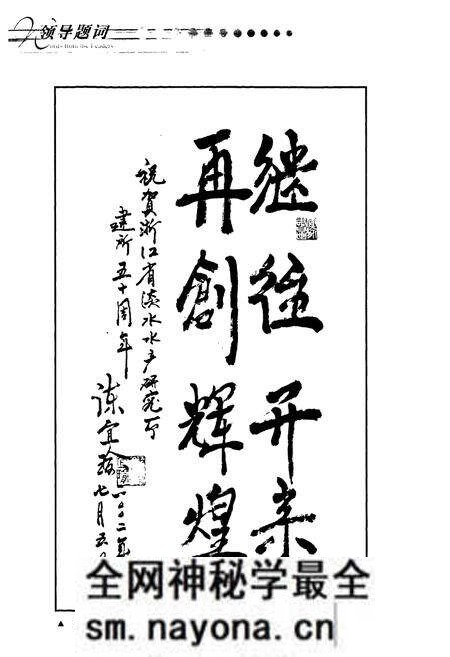 领导题词
Words from the Leaders
继往开来
再創辉煌
祝贺浙江省淡水水产研究所
建所五十周年
陈宜瑜
二〇〇二年
七月五日
全网神秘学最全
sm.nayona.cn